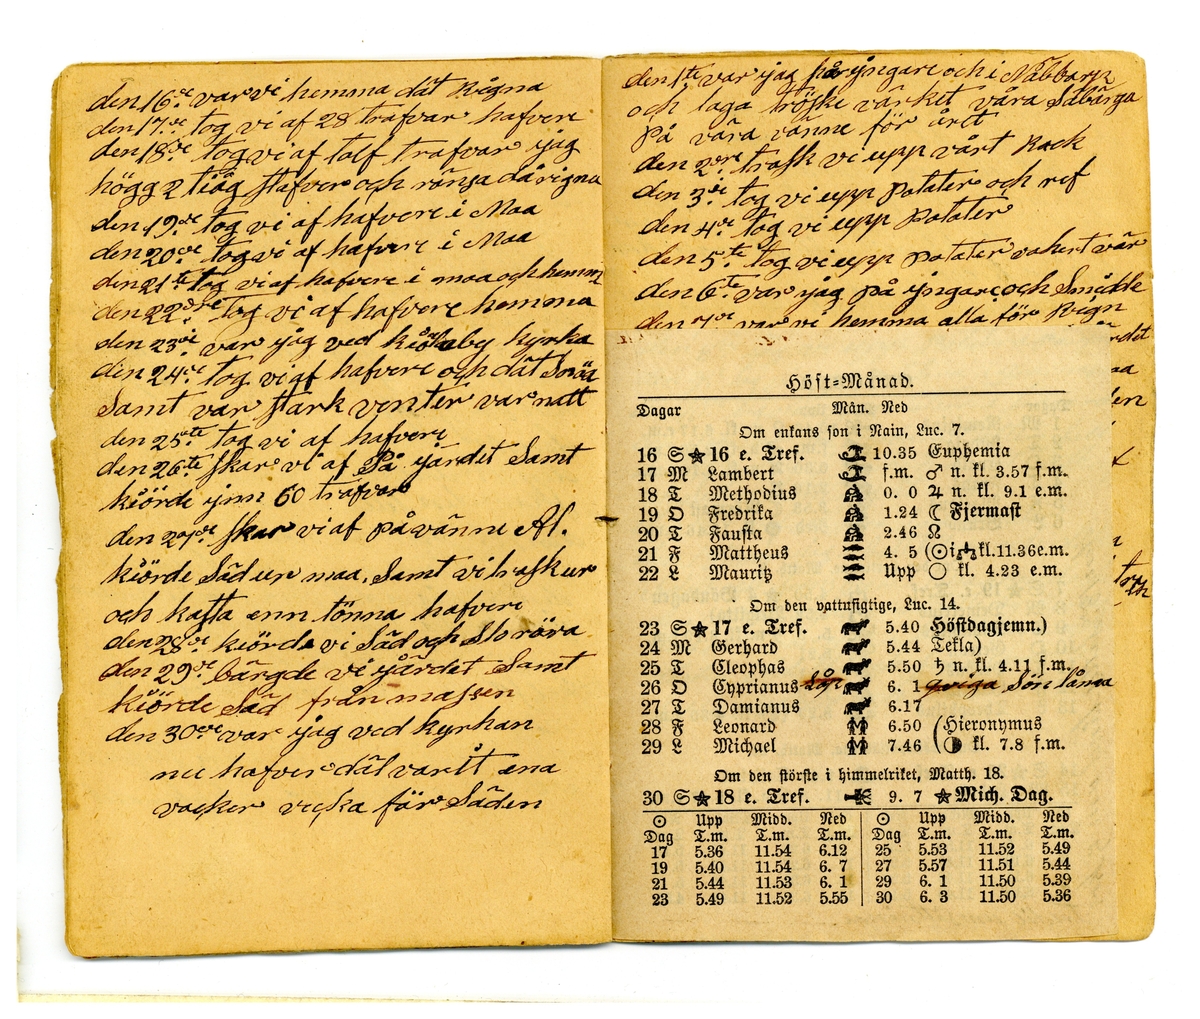 den 16de var vi hemma dät Rägna
den 17.de tog vi af 28 trafvar hafvere
den 18de tog vi af tolf trafvar jag
högg 2 tiäg stafver och ränsa då rigna
den 19.de tog vi af hafvere i Maa
den 20de tog vi af hafvere i Maa
den 21ste tog vi af hafvere i maa och hemm
den 22dre tog vi af hafvere hemma
den 23de var jag ved kiölaby kyrka
den 24.de tog vi af hafvere och dät Snöa
Samt var stark venter var natt
den 25te tog vi af hafvere
den 26te skar vi af På järdet Samt
kiörde jnn 60 trafvar
den 27de skar vi af på vänne Al.
kiörde Säd ur maa. Samt vi
och kasta enn tönna hafvere
den 28de kiörde vi Säd och Storöra
den 29de bärgde vi järdet Samt
kiörde Säd från massen
den 30de var jag ved kyrkan
nu hafver dät varit ena
vacker vicka för Säden
den 1ste var jag på yngare och i Nabbarp
och laga tröske värket våra Sdbänga
På våra vänne för årlt
den 2dre trask vi upp vårt Rack
den 3de tog vi upp Potater och ref
den 4de tog vi upp Potater
den 5te tog vi upp Potater vakert vär
den 6te var jag på yngare och Smidde
den 7de var vi hemma alla för Rign
Höst-Månad.
Dagar Mån. Ned
Om enkans son i Nain, Luc. 7.
16 S ★ 16 e. Tref. 10.35 Euphemia
17 M Lambert f.m. ♂ n. kl. 3.57 f.m.
18 T Methodius 0. 0 ♃ n. kl. 9.1 e.m.
19 O Fredrika 1.24 ☾ Fjermast
20 T Fausta 2.46 ☊
21 F Mattheus 4. 5 (☉ i ♎ kl. 11.36 e.m.
22 L Mauritz Upp ○ kl. 4.23 e.m.
Om den vattusigtige, Luc. 14.
23 S ★ 17 e. Tref. 5.40 Höstdagjemn.)
24 M Gerhard 5.44 Tekla)
25 T Cleophas 5.50 ♄ n. kl. 4.11 f.m.
26 O Cyprianus 6. 1 qviga Sön låmma
27 T Damianus 6.17
28 F Leonard 6.50 (Hieronymus
29 L Michael 7.46 (◑ kl. 7.8 f.m.
Om den störste i himmelriket, Matth. 18.
30 S ★ 18 e. Tref. 9. 7 ★ Mich. Dag.
☉ Upp Midd. Ned ☉ Upp Midd. Ned
Dag T.m. T.m. T.m. Dag T.m. T.m. T.m.
17 5.36 11.54 6.12 25 5.53 11.52 5.49
19 5.40 11.54 6. 7 27 5.57 11.51 5.44
21 5.44 11.53 6. 1 29 6. 1 11.50 5.39
23 5.49 11.52 5.55 30 6. 3 11.50 5.36